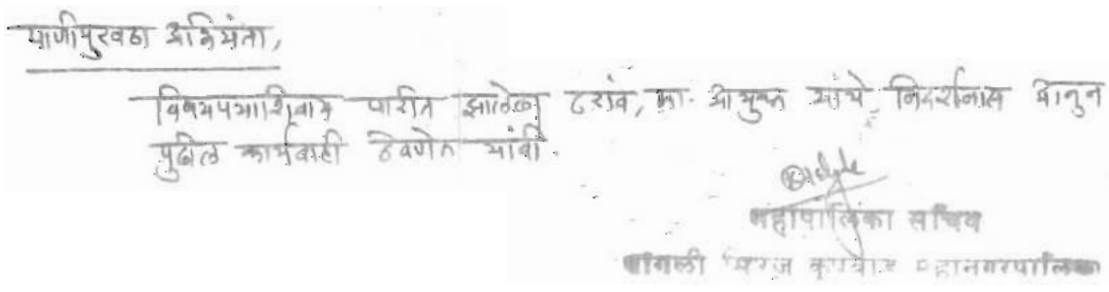 पाणीपुरवठा अभियंता,
विषयपत्राशिवाय पारीत झालेला ठराव, मा. आयुक्त यांचे निदर्शनास आणुन
पुढील कार्यवाही ठेवणेत यावी.
महापालिका सचिव
सांगली मिरज कुपवाड महानगरपालिका